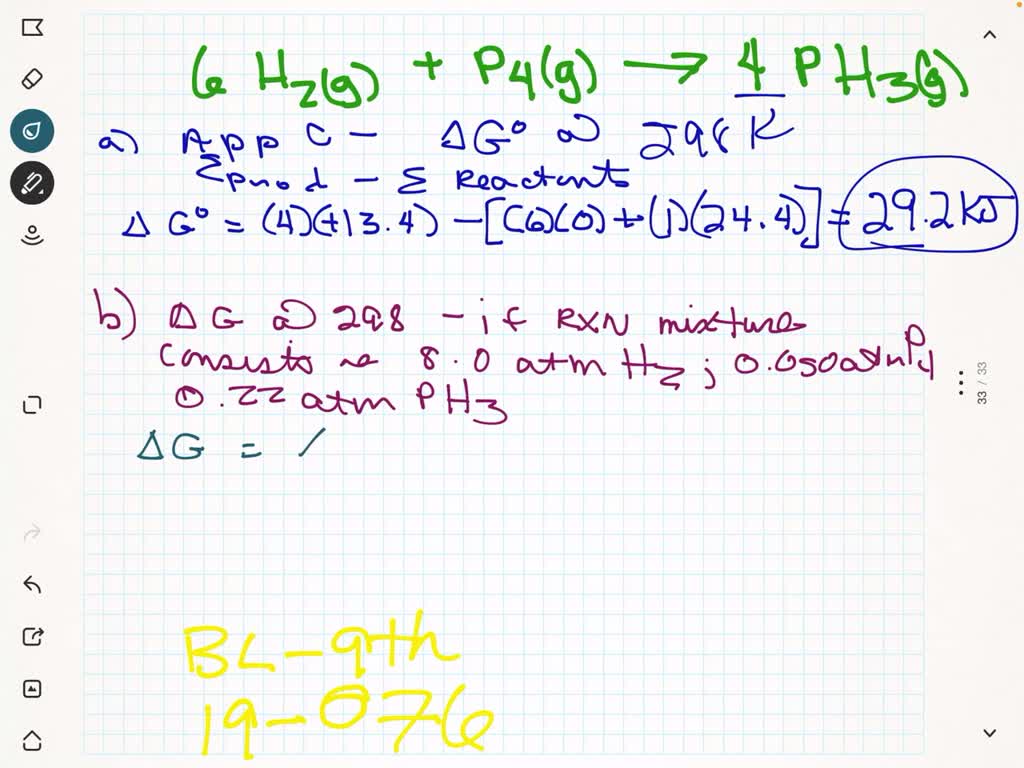 6 H2(g) + P4(g) → 4 PH3(g)
a) App C - ΔG° @ 298 K
Σprod - Σ Reactants
ΔG° = (4)(+13.4) - [(6)(0) + (1)(24.4)] = 29.2 kJ
b) ΔG @ 298 - if RXN mixture
consists 8.0 atm H2; 0.050 atm P4
0.22 atm PH3
ΔG =
33 / 33
BL-9th
19-076